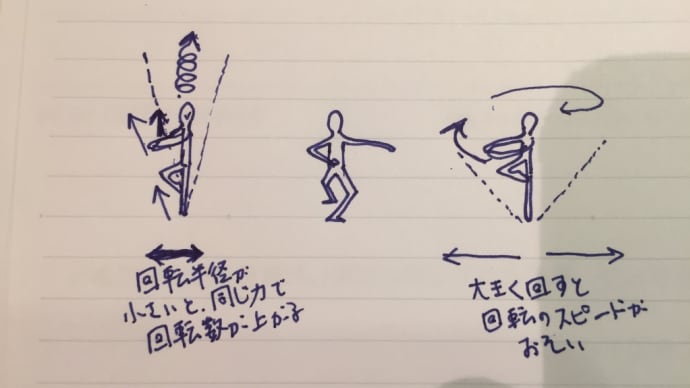 回転半径が
小さいと、同じ力で
回転数が上がる
大きく回すと
回転のスピードが
おそい